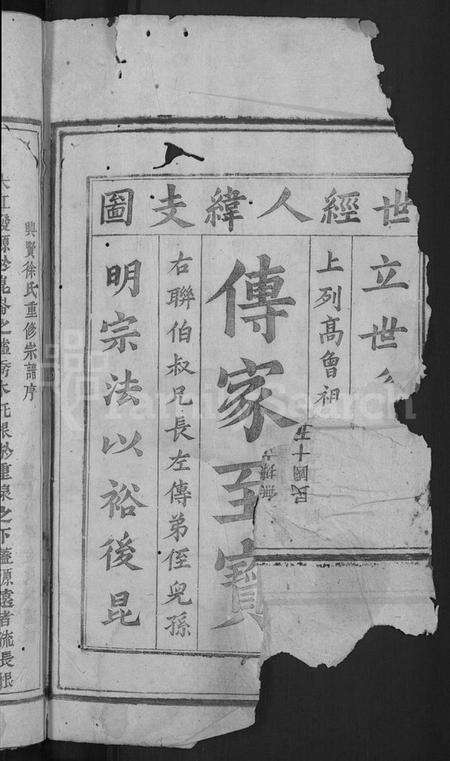 世經人緯支圖
立世
上列高曾祖
傳家至寶
右聯伯叔兄長左傳弟侄兒孫
明宗法以裕後昆
民國十五
興賢徐氏重修宗譜序
大江發源於岷
之下蓋源遠者流長根
FamilySearch